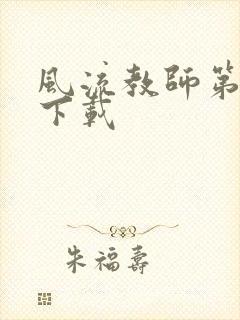 風流教師第
下載
朱福壽